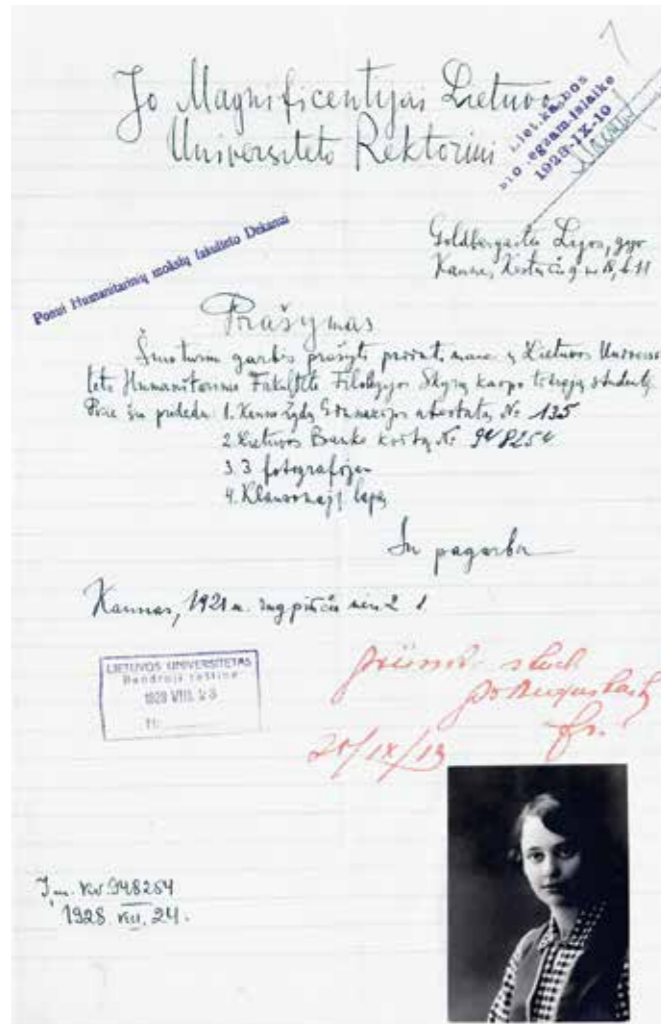 Jo Magnificencijai Lietuvos
Universiteto Rektoriui
Liet. kalbos
egzam. išlaikė
1928-IX-10
Ponui Humanitarinių mokslų fakulteto Dekanui
Goldbergaitės Lėjos, gyv.
Kaune, Kęstučio g-vė 18, b 11
Prašymas
Šiuo turiu garbės prašyti priimti mane į Lietuvos Universi
teto Humanitarinio Fakulteto Filologijos Skyrių kaipo tikrąją studentę
Prie šio pridedu: 1. Kauno Žydų Gimnazijos atestatą № 135
2. Lietuvos Banko kvitą № 948254
3. 3 fotografijas
4. Klausomąjį lapą
Su pagarba
Kaunas, 1928 m. rugpiūčio mėn 2
LIETUVOS UNIVERSITETAS
Bendroji raštinė
1928 VIII 28
Nr.
stud
Įm. kv. 948254
1928. VIII. 24.